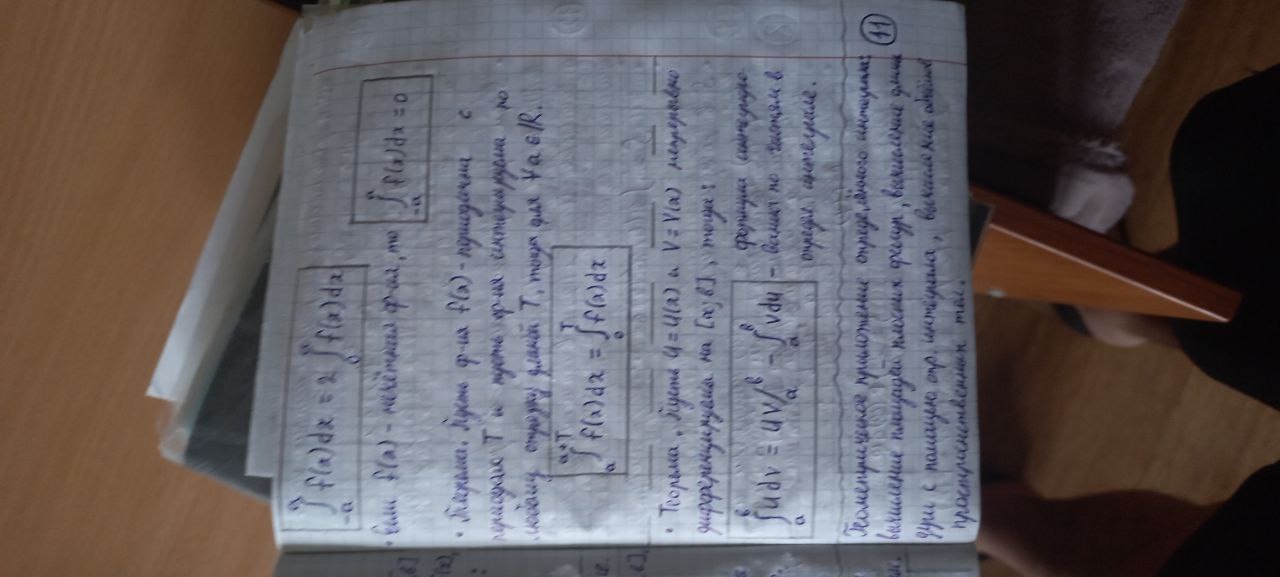 ∫₋ₐᵃ f(x)dx = 2 ∫₀ᵃ f(x)dx
• Если f(x) - нечётная ф-ия, то ∫₋ₐᵃ f(x)dx = 0
• Теорема. Пусть ф-ия f(x) - периодична с
периодом T и пусть ф-ия интегрируема по
любому отрезку длиной T, тогда для ∀a∈ℝ.
∫ₐᵃ⁺ᵀ f(x)dx = ∫₀ᵀ f(x)dx
• Теорема. Пусть U = U(x) и V = V(x) непрерывно
дифференцируемы на [a,b], тогда:
∫ₐᵇ U dV = UV/ₐᵇ - ∫ₐᵇ V dU - формула интегриро-
вания по частям в
опред. интеграле.
Геометрическое приложение определённого интеграла: 11
вычисление площадей плоских фигур, вычисление длины
дуги с помощью опр. интеграла, вычисление объёмов
пространственных тел.